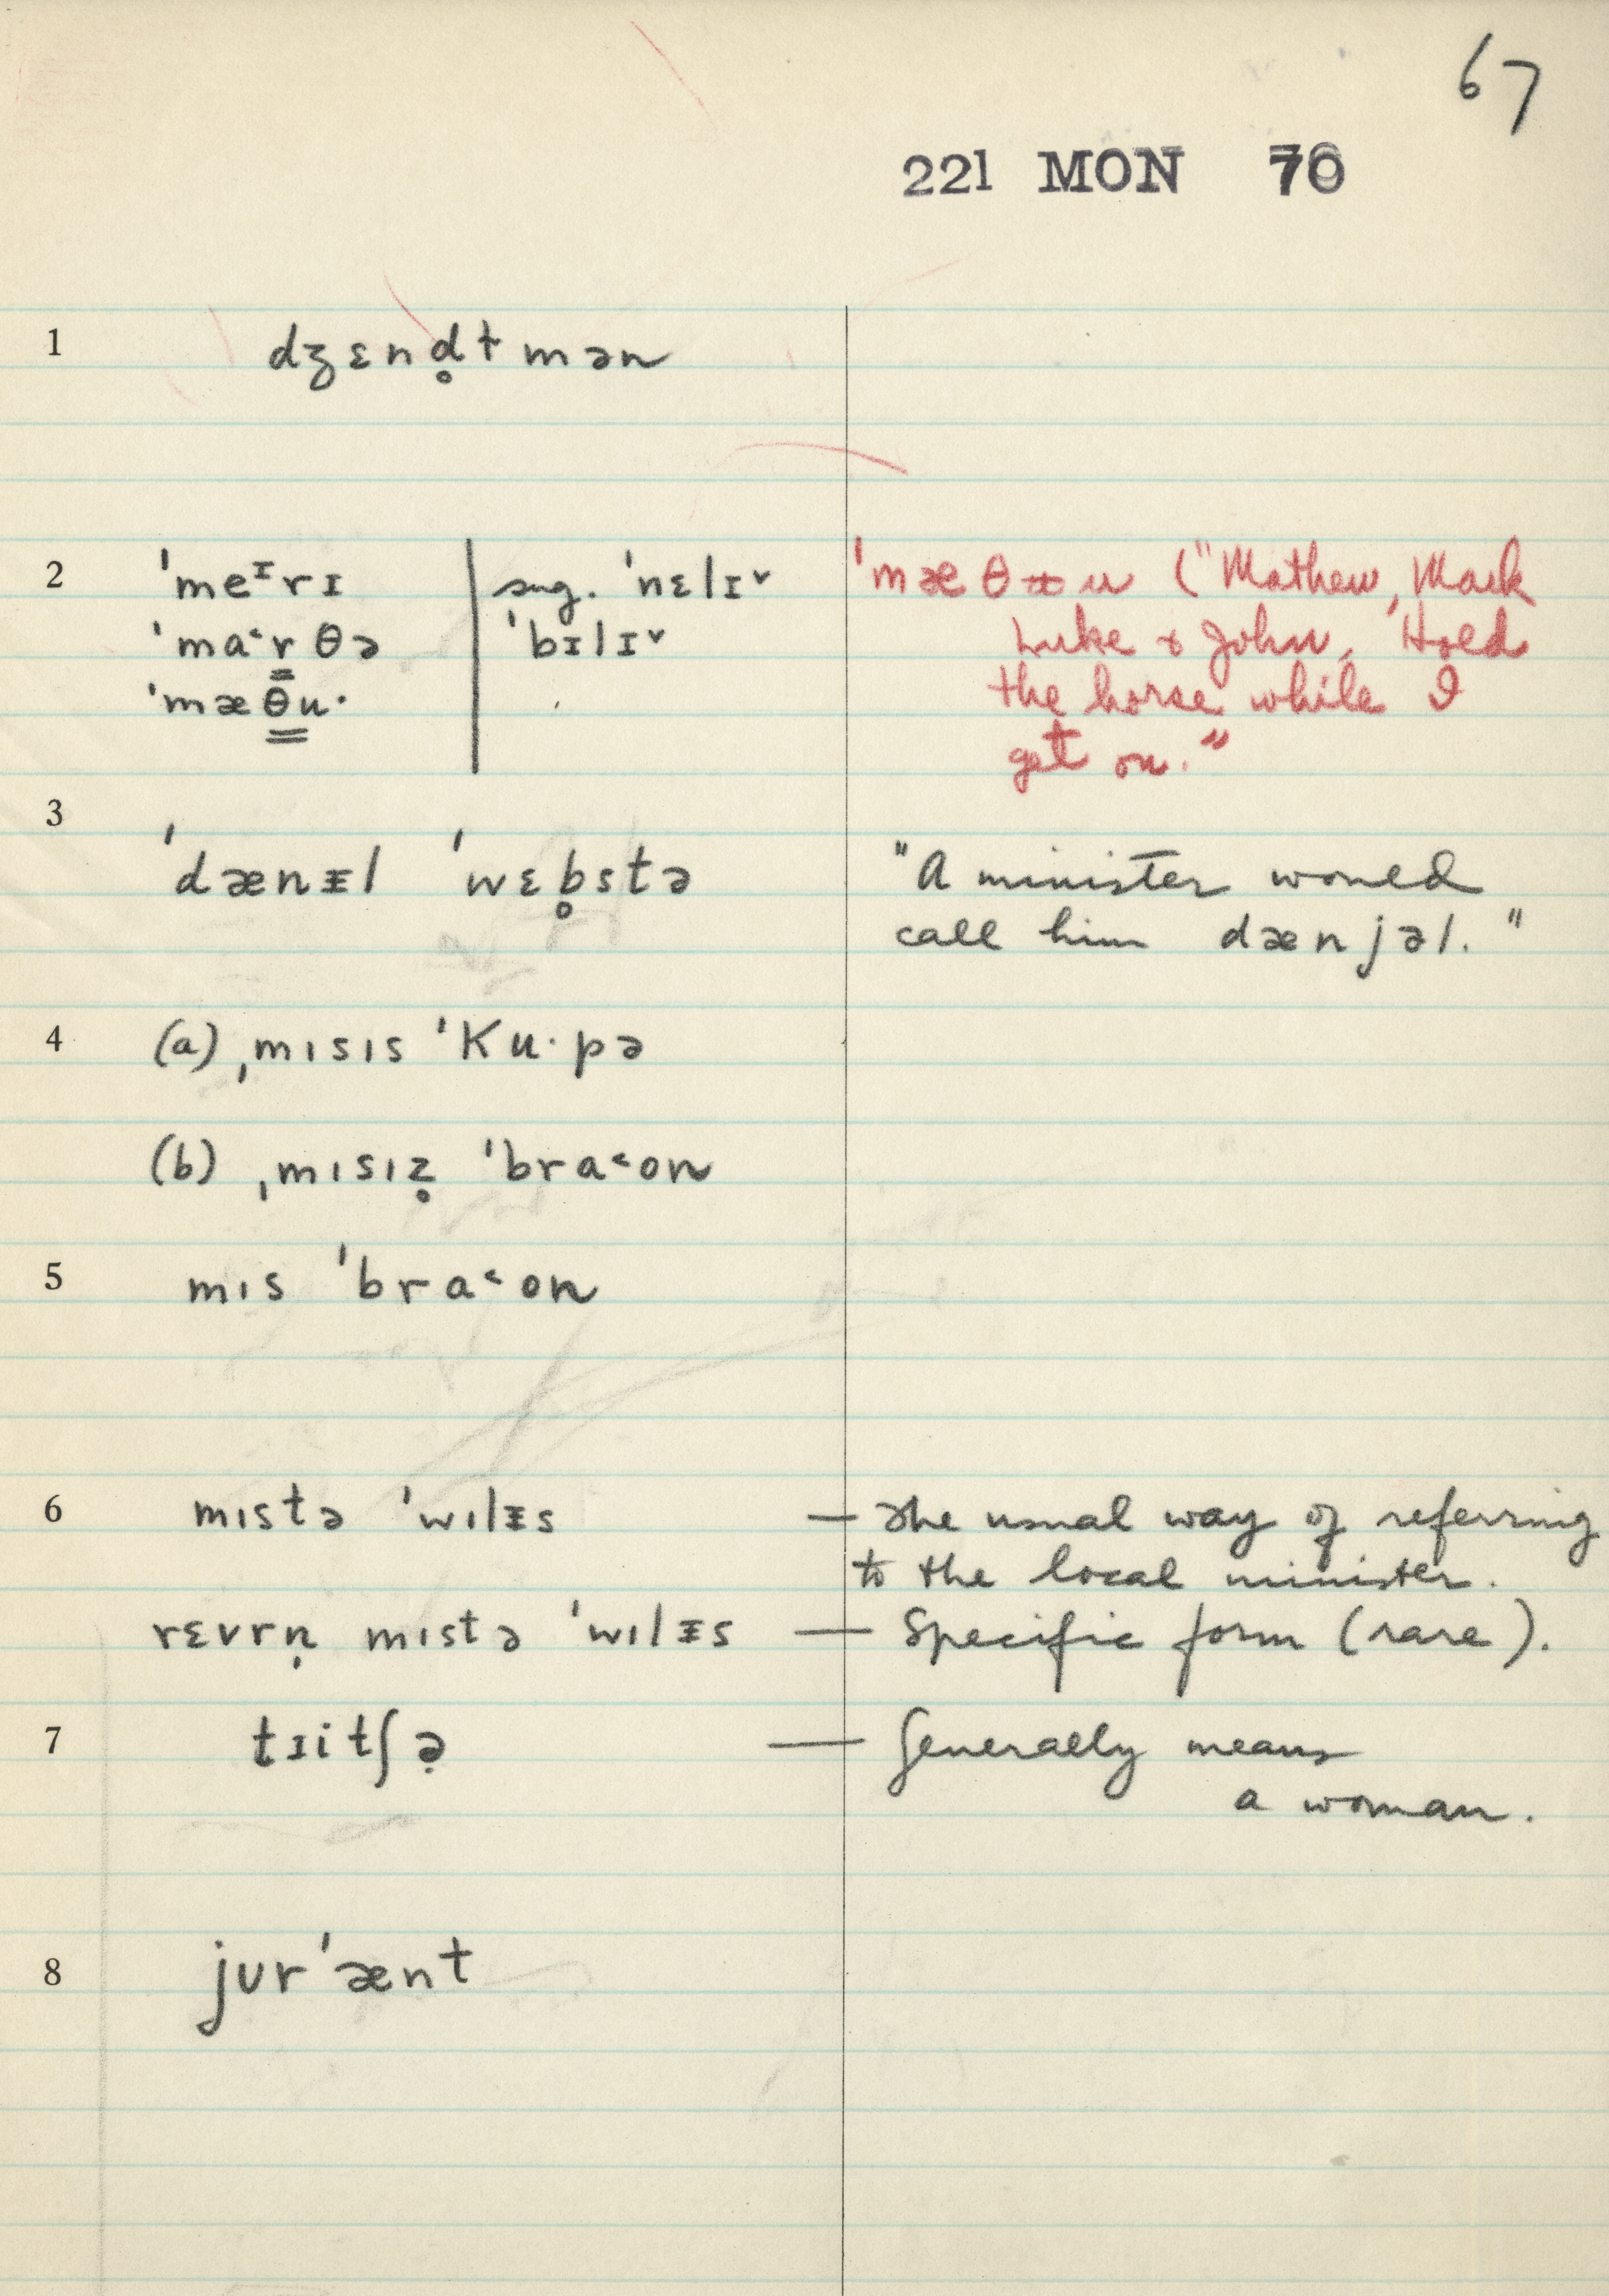 67
221 MON 70
1 dʒɛnd̥ɫmən
2 ˈmeᶦrɪ sug. ˈnɛlɪ˅ ˈmæθᵾu ("Mathew, Mark
ˈma˂r̳θə ˈbɪlɪ˅ Luke & John, Hold
ˈmæθ̳u· the horse while I
get on."
3 ˈdænᵻl ˈwɛb̥stə "A minister would
call him dænjəl."
4 (a) ˌmɪsɪs ˈKu·pə
(b) ˌmɪsɪz̥ ˈbra˂on
5 mɪs ˈbra˂on
6 mɪstə ˈwɪlᵻs — The usual way of referring
to the local minister.
rɛvrn̩ mɪstə ˈwɪlᵻs — Specific form (rare).
7 tɪitʃə̣ — Generally means
a woman.
8 jʊrˈænt